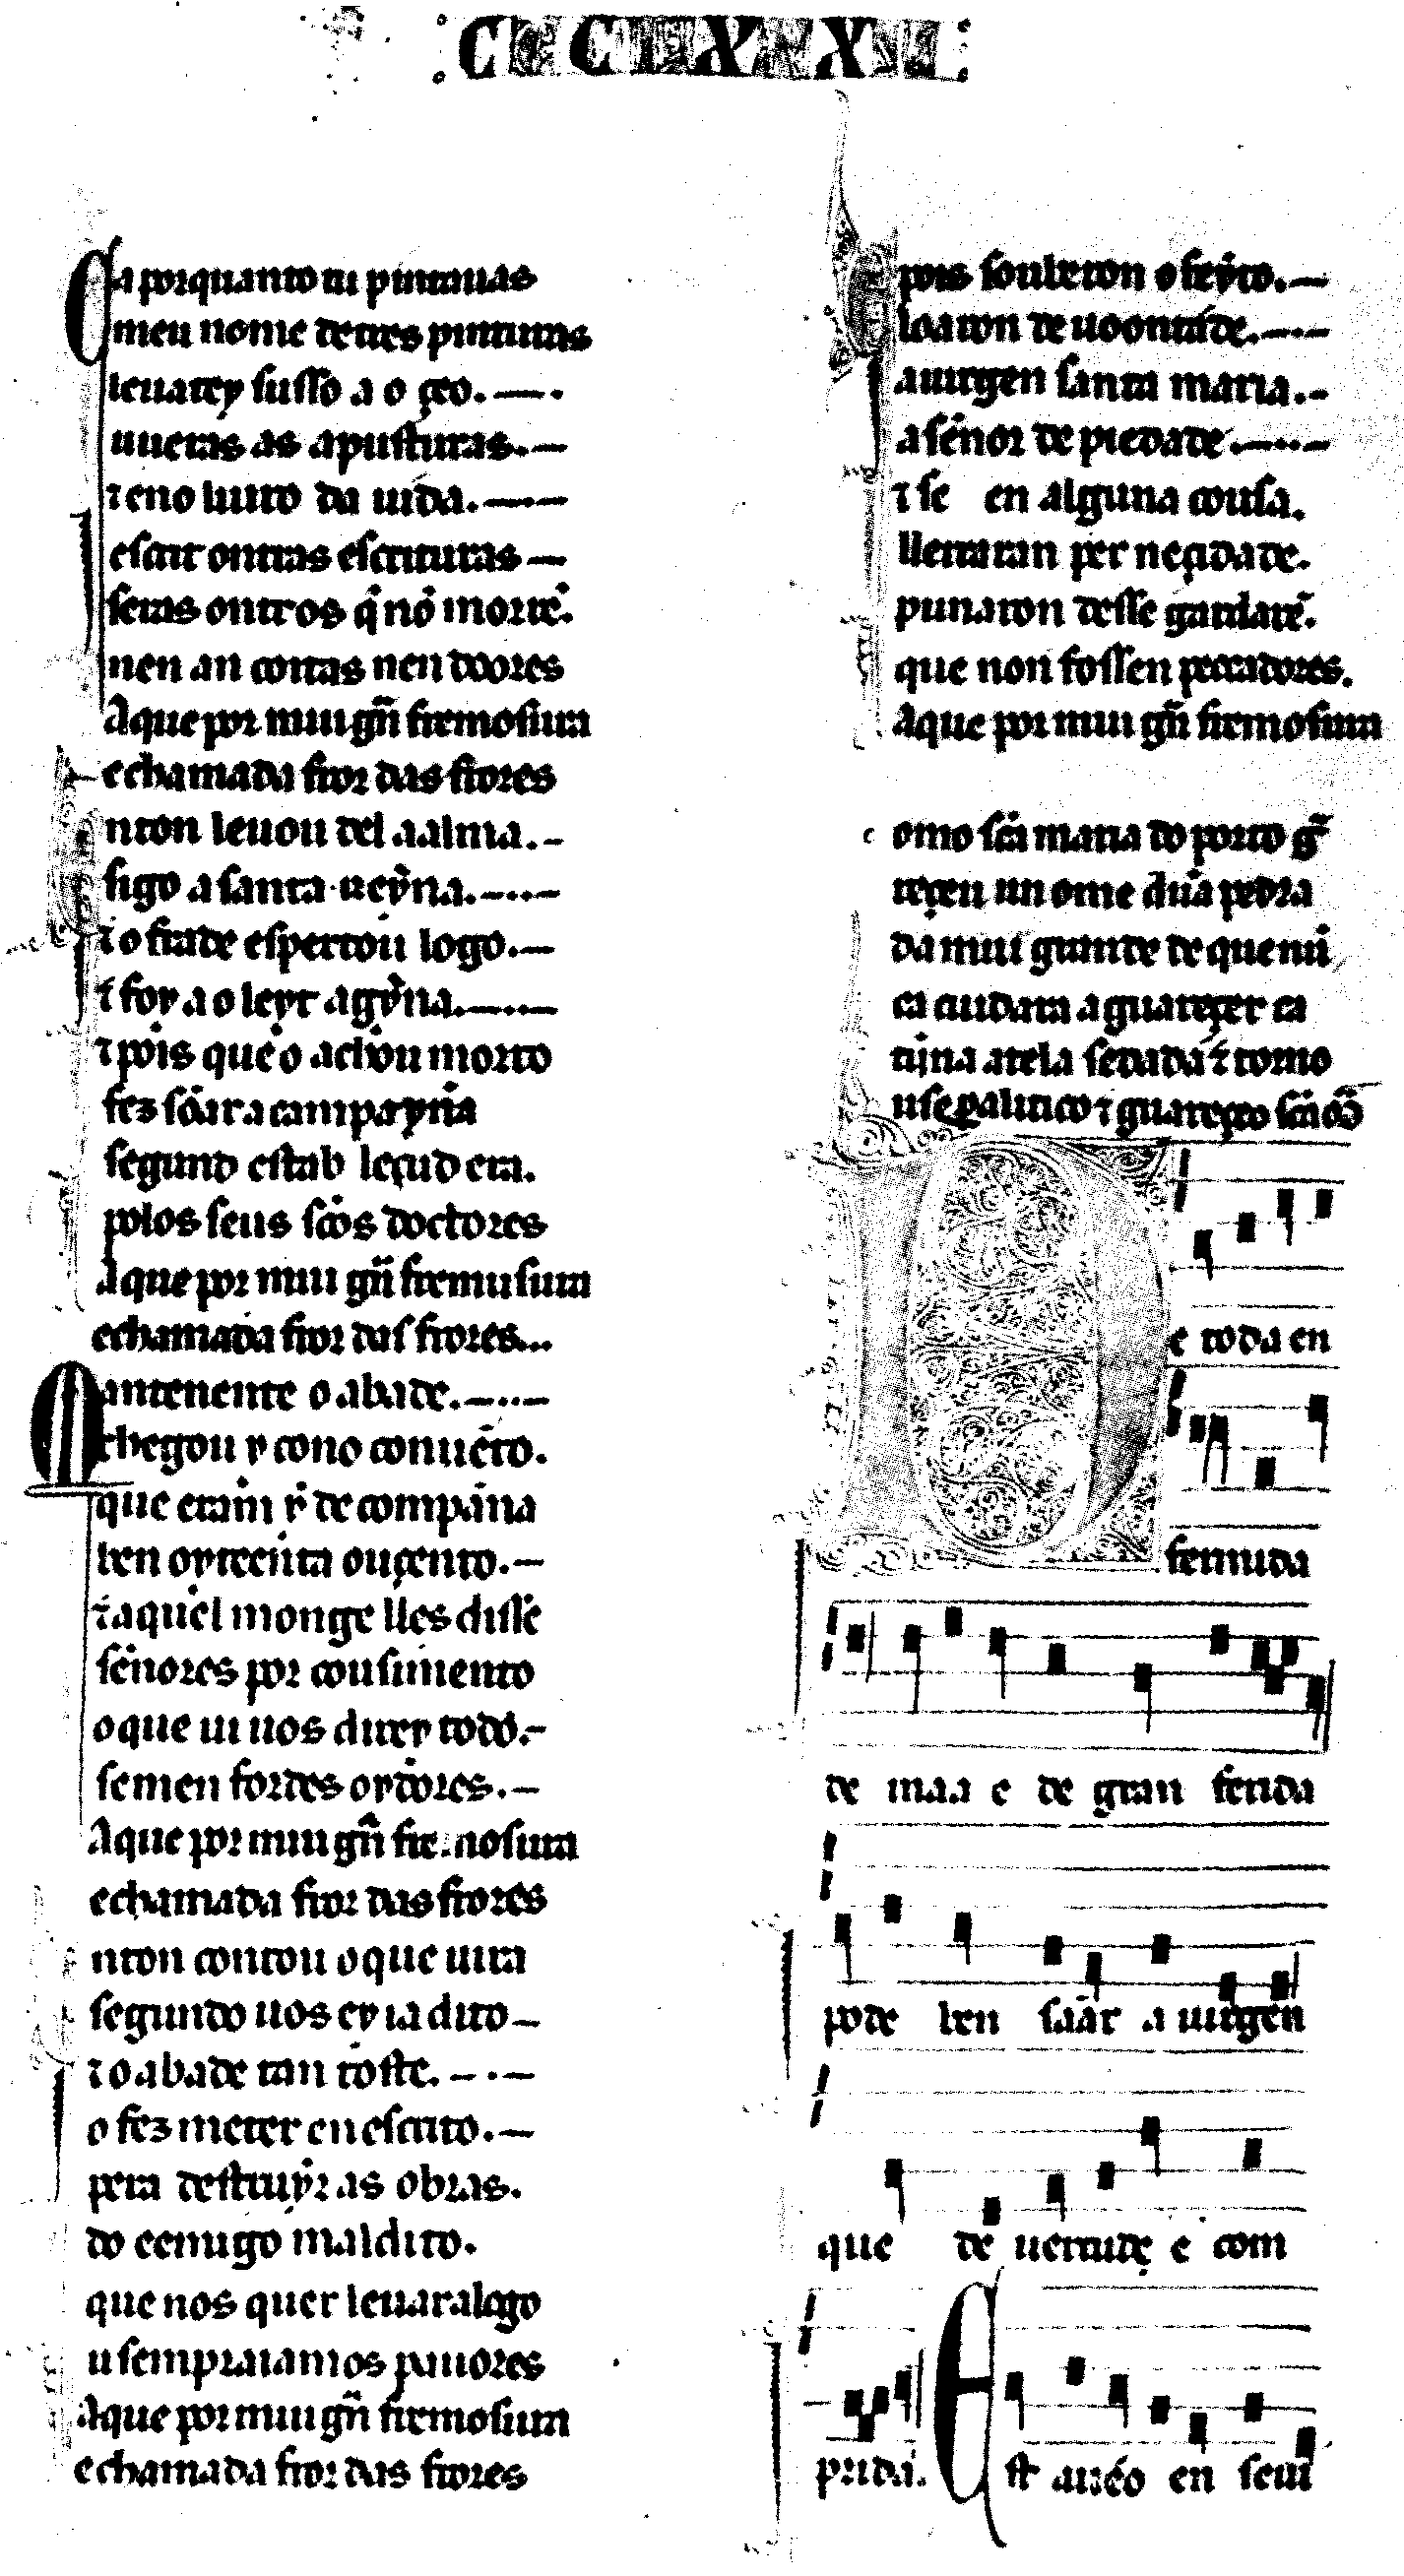 CCCLXXXI
Ca porquanto tu pintauas
meu nome de tres pinturas
leuarey suso a o çeo.
u ueras as aposturas.
⁊ eno liuro da uida.
escrit ontras escrituras
seras ontros q̇ nõ morrẽ.
nen an coitas nen doores
A que por mui gñ fremosura
e chamada fror das frores
nton leuou del a alma.
sigo a santa reynna.
⁊ o frade espertou logo.
⁊ foy a o leyt agynna.
⁊ pois que o achou morto
fez sõar a campaynna
segund estableçud era.
polos seus scõs doctores
A que por mui gñ fremusura
e chamada fror das frores...
Mantenente o abade.
chegou y cono conuẽto.
que eram y de compãna
ben oyteẽnta ou çento.
⁊ aquel monge lles disse
sẽnores por cousimento
o que ui uos direy todo.
se m en fordes oydores.
A que por mui gñ fremosura
e chamada fror das frores
nton contou o que uira
segundo uos ey ia dito
⁊ o abade tan toste.
o fez meter en escrito.
pera destruyr as obras.
do eemigo maldito.
que nos quer leuar a logo
u sempr aiamos pauores
A que por mui gñ fremosura
e chamada fror das frores
E pois souberon o feyto.
loaron de uoontade.
a uirgen santa maria.
a sẽnor de piedade.
⁊ se en alguna cousa.
ll erraran per neçidade.
punaron de sse guardarẽ.
que non fossen peccadores.
A que por mui gñ fremosura
omo scã maria do porto g̃
reçeu un ome dũa pedra
da mui grande de que nũ
ca cuidara a guareçer ca
tijna a tela serrada ⁊ tomo
u se paralitico ⁊ guareçeo scã
De toda en
fermida
de maa e de gran ferida
pode ben sãar a uirgen
que de uertude e com
prida. Est auẽo en seui